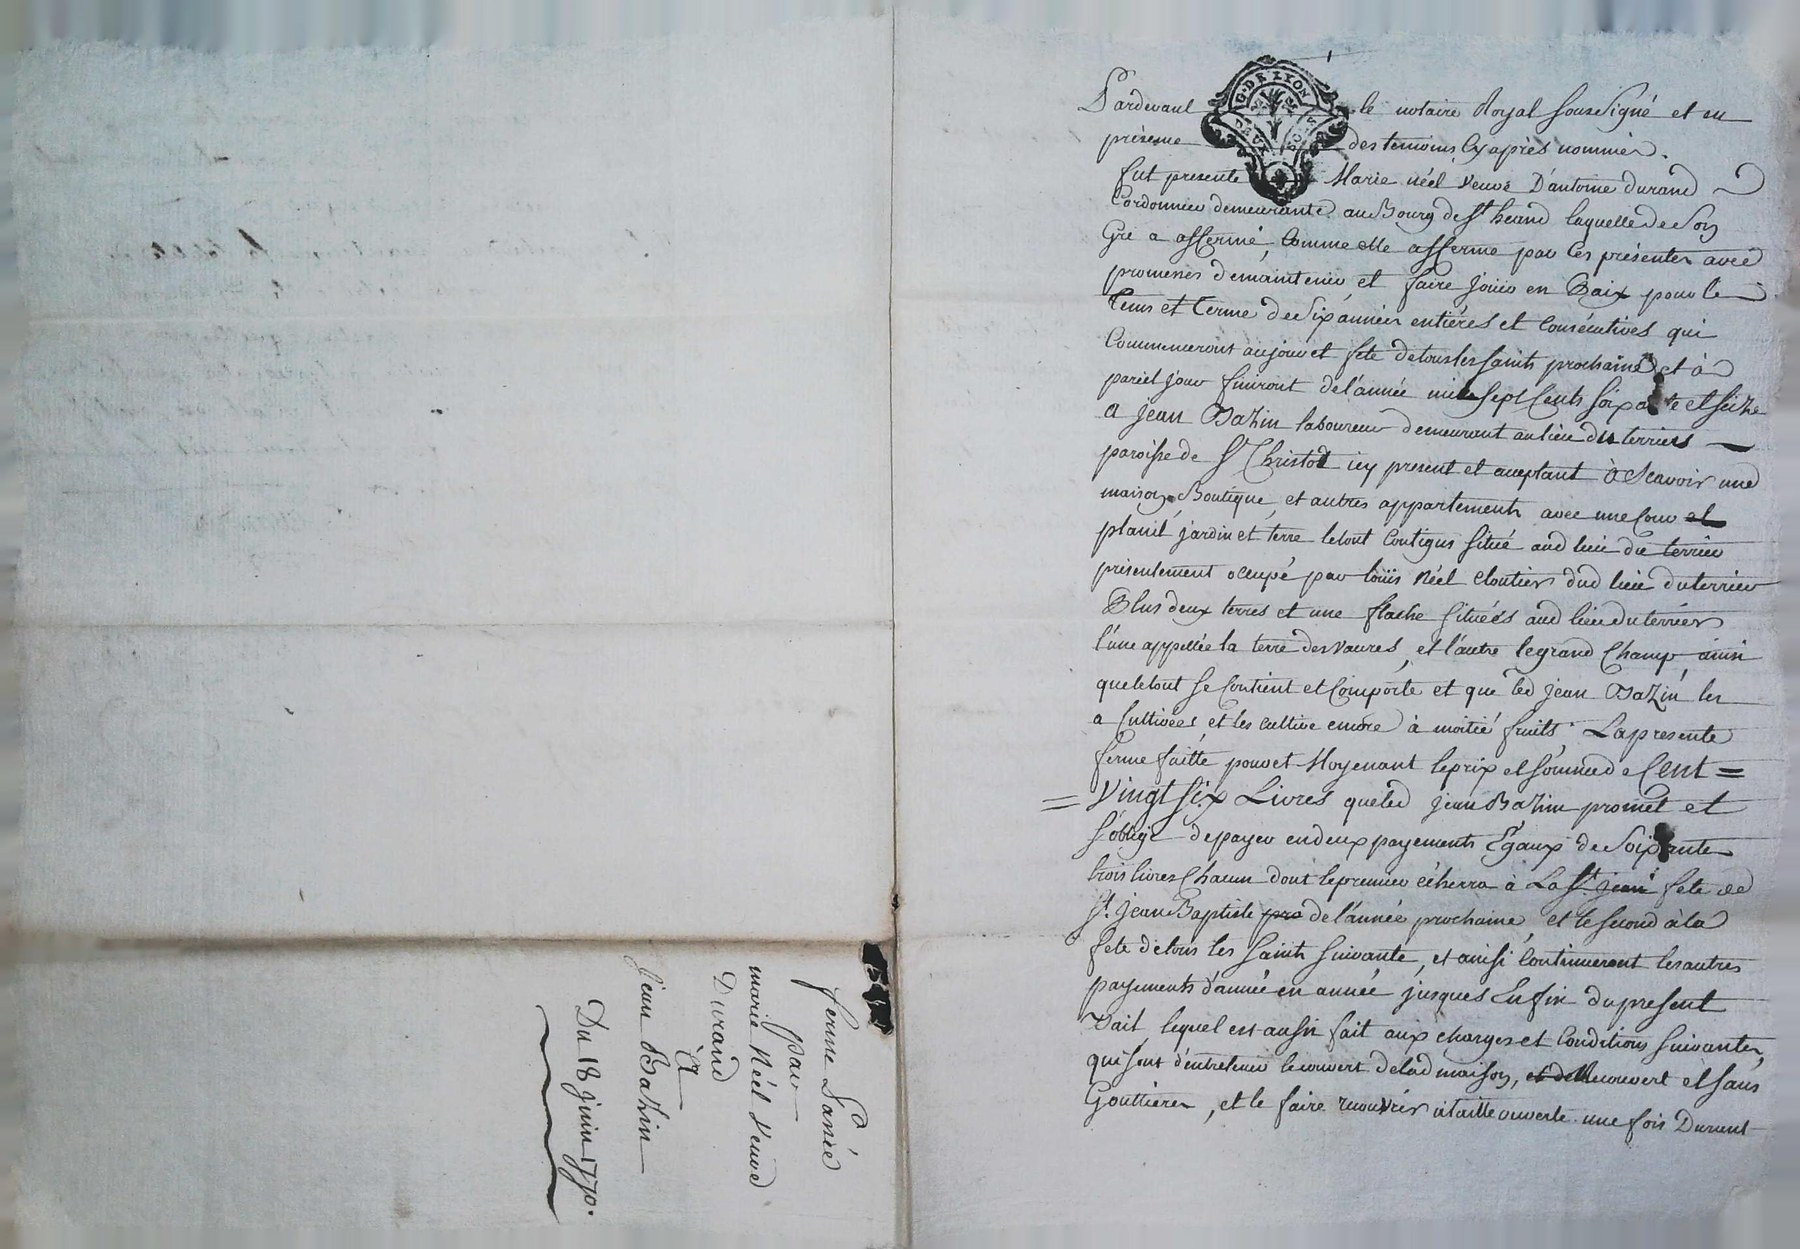 G. DE LYON
DEUX SOLS
Pardevant le notaire Royal Soussigné et en
présence des temoins Cyaprès nommés.
fut presente Marie néel veuve D'antoine durand
Cordonnier demeurante au Bourg de St heand laquelle de Son
Gré a affermé, Comme elle afferme par Ces présentes avec
promesses de maintenir et faire joüir en Paix pour le
tems et terme de Six années entiéres et Consécutives qui
Commenceront au jour et fete de tous les Saints prochaine et à
pareil jour finiront de l'année mil Sept Cents Soixante et Seize
a jean Bazin laboureur demeurant au lieu du terrier
paroisse de St Christot icy present et acceptant à Scavoir une
maison, Boutique, et autres appartements avec une Cour et
plaml, jardin et terre le tout Contigus Situé aud lieu du terrier
présentement occupé par loüis Néel cloutier dud lieu du terrier
Plus deux terres et une flache Situées aud lieu du terrier
l'une appellée la terre des vaures, et l'autre le grand Champ, ainsi
que le tout Se Contient et Comporte et que led jean Bazin les
a Cultivées et les cultive encore à moitié fruits. La presente
ferme faitte pour et Moyenant le prix et Somme de Cent =
= Vingt Six Livres que led jean Bazin promet et
S'oblige de payer en deux payements Egaux de Soixante
trois livres Chacun dont le premier écherra à La St. jean fete de
St. jean Baptiste de l'année prochaine, et le Second à la
fete de tous les Saints Suivante, et ainsi Continueront les autres
payements d'année en année jusques En fin du present
Bail, lequel est aussi fait aux charges et Conditions Suivantes,
qui Sont d'entretenir le couvert de lad maison, recouvert et Sans
Gouttieres, et le faire recouvrir à taille ouverte une fois Durant
ferme Passée
par
marie Néel veuve
Durand
à
Jean Bazin
Du 18 juin 1770.